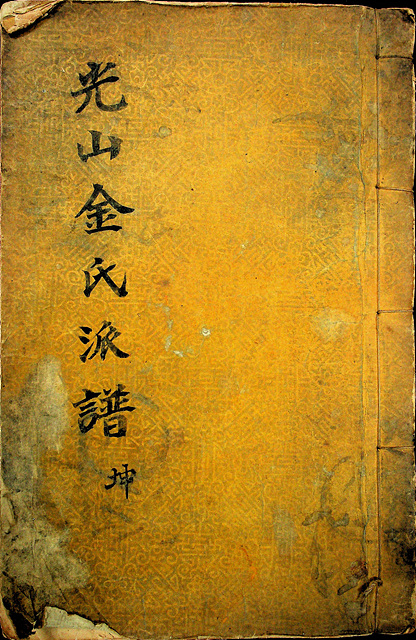 光山金氏派譜 坤